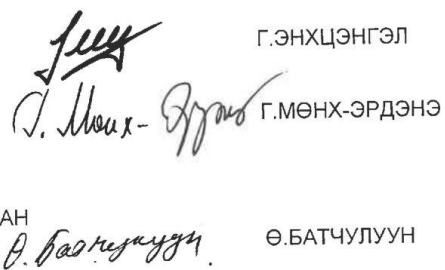 Г.ЭНХЦЭНГЭЛ
Г. Мөнх- Г.МӨНХ-ЭРДЭНЭ
АН
Ө. Батчулуун Ө.БАТЧУЛУУН